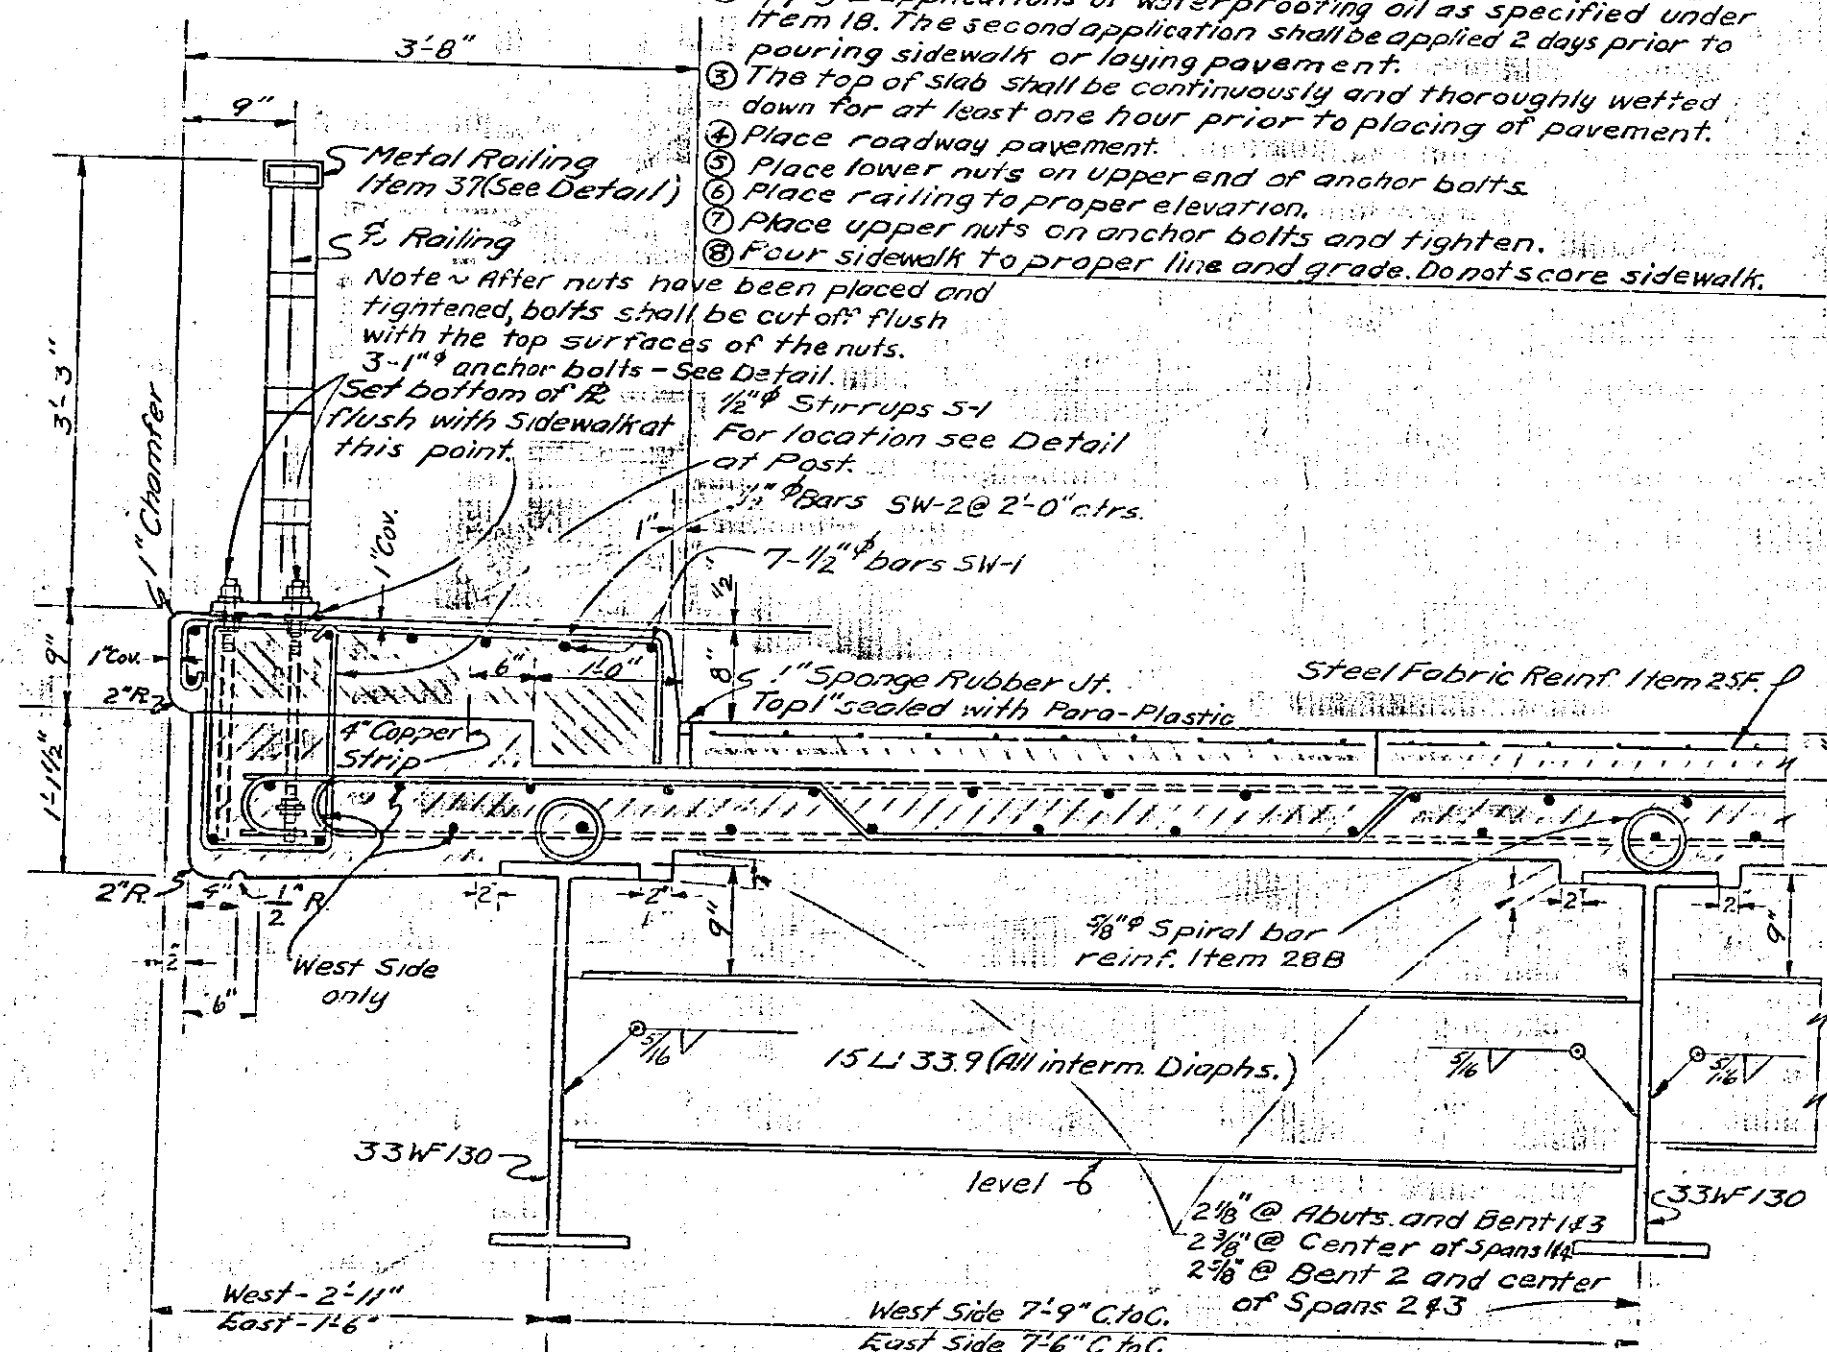 applications of waterproofing oil as specified under
Item 18. The second application shall be applied 2 days prior to
pouring sidewalk or laying pavement.
③ The top of slab shall be continuously and thoroughly wetted
down for at least one hour prior to placing of pavement.
④ Place roadway pavement.
⑤ Place lower nuts on upper end of anchor bolts.
⑥ Place railing to proper elevation.
⑦ Place upper nuts on anchor bolts and tighten.
⑧ Pour sidewalk to proper line and grade. Do not score sidewalk.
3'-8"
9"
Metal Railing
Item 37 (See Detail)
℄ Railing
Note ~ After nuts have been placed and
tightened, bolts shall be cut off flush
with the top surfaces of the nuts.
3-1"ϕ anchor bolts - See Detail.
Set bottom of ℞
flush with Sidewalk at
this point.
½"ϕ Stirrups S-1
For location see Detail
at Post.
½"ϕ Bars SW-2 @ 2'-0" ctrs.
1"
7-½"ϕ bars SW-1
3'-3"
1" Chamfer
1" Cov.
½
9"
1" Cov.
2" R.
6"
1'-0"
8"
1" Sponge Rubber Jt.
Top 1" sealed with Para-Plastic
Steel Fabric Reinf. Item 25F.
4" Copper
Strip
1'-1½"
2" R.
4"
½" R.
2"
2"
9"
2"
2"
9"
½"
6"
West Side
only
⅝"ϕ Spiral bar
reinf. Item 28B
5/16
15 ⊔ 33.9 (All interm. Diaphs.)
5/16
5/16
33 WF 130
level
33 WF 130
2⅛" @ Abuts. and Bent 1&3
2⅜" @ Center of Spans 1&4
2⅝" @ Bent 2 and center
of Spans 2&3
West - 2'-11"
East - 1'-6"
West Side 7'-9" C. to C.
East Side 7'-6" C. to C.